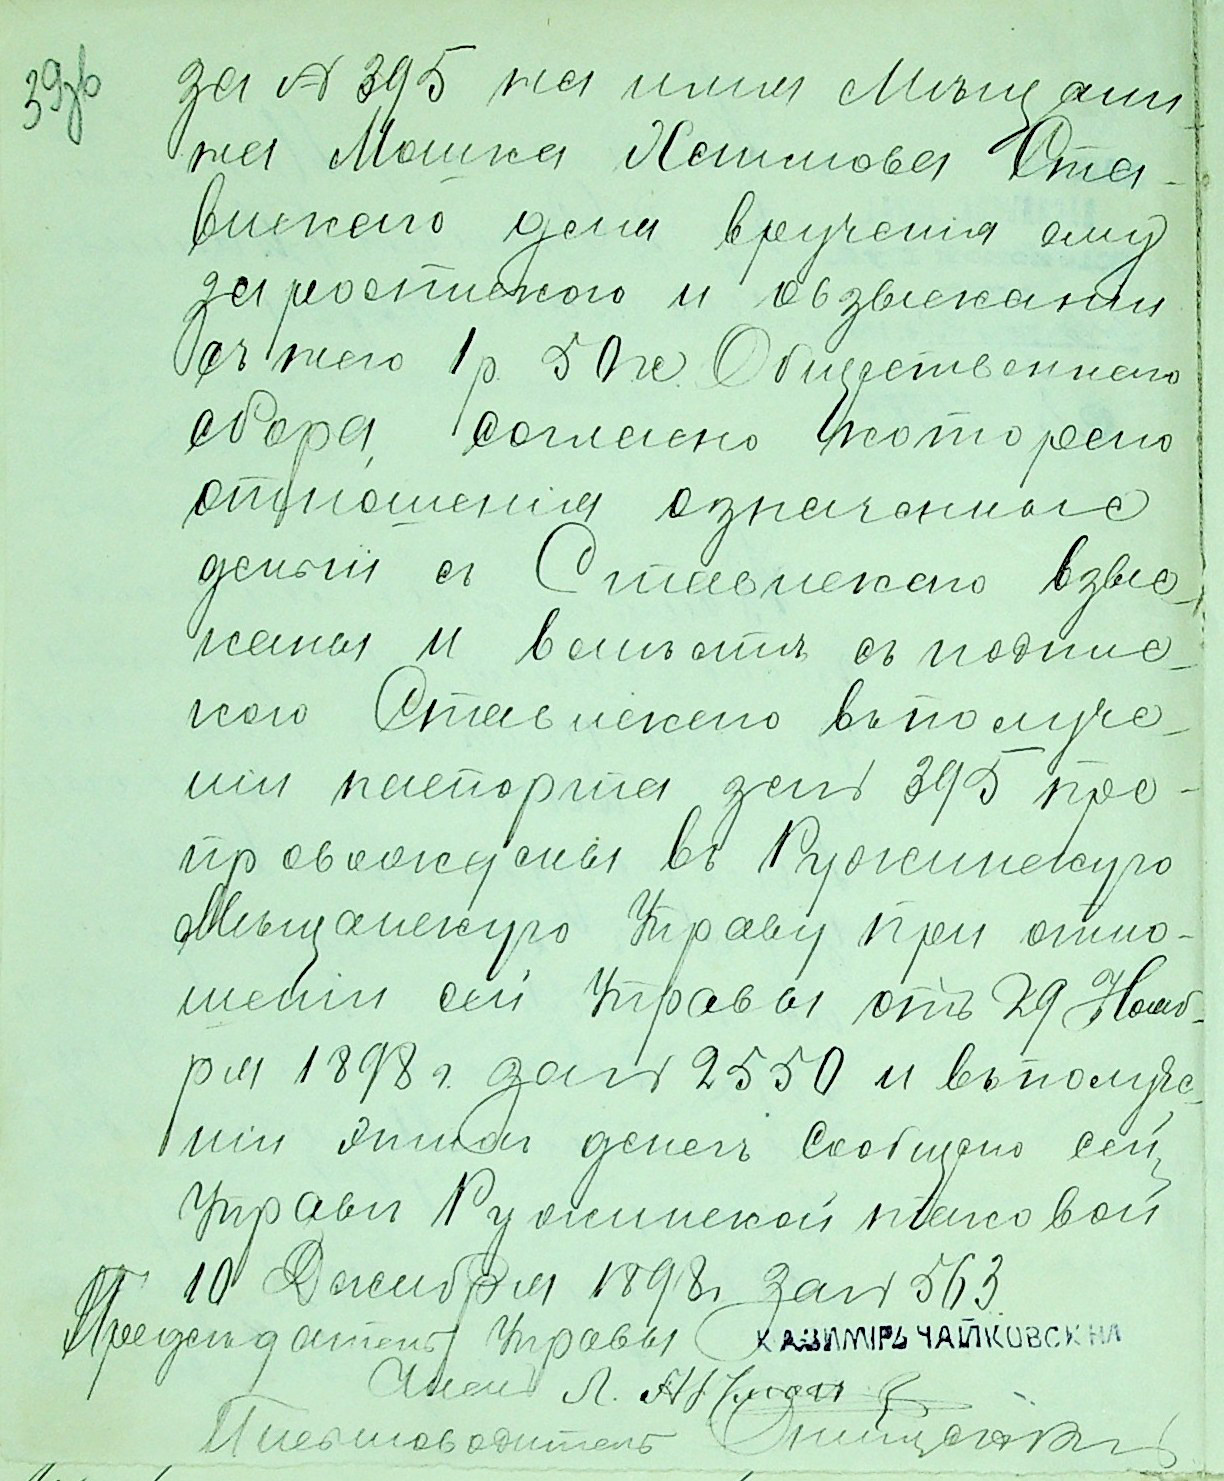 39 об
за № 395 на имя Мѣщани-
на Мошка Хаимова Ста-
вискаго для врученія ему
за роспискою и овзысканіи
съ него 1 р. 50 к. Общественнаго
сбора, согласно которого
отношенія означенные
деньги съ Ставискаго взыс-
каны и вмѣстѣ съ подпис-
кою Ставискаго въ получе-
ніи паспорта за № 395 пре-
провождены въ Ружинскую
Мѣщанскую Управу при отно-
шеніи сей Управы отъ 29 Нояб-
ря 1898 г. за № 2550 и въ получе-
ніи этихъ денегъ сообщено сей
Управы Ружинской таковой
10 Декабря 1898 г. за № 563
Предсѣдатель Управы КАЗИМІРЪ ЧАЙКОВСКІЙ
Членъ Л.
Письмоводитель